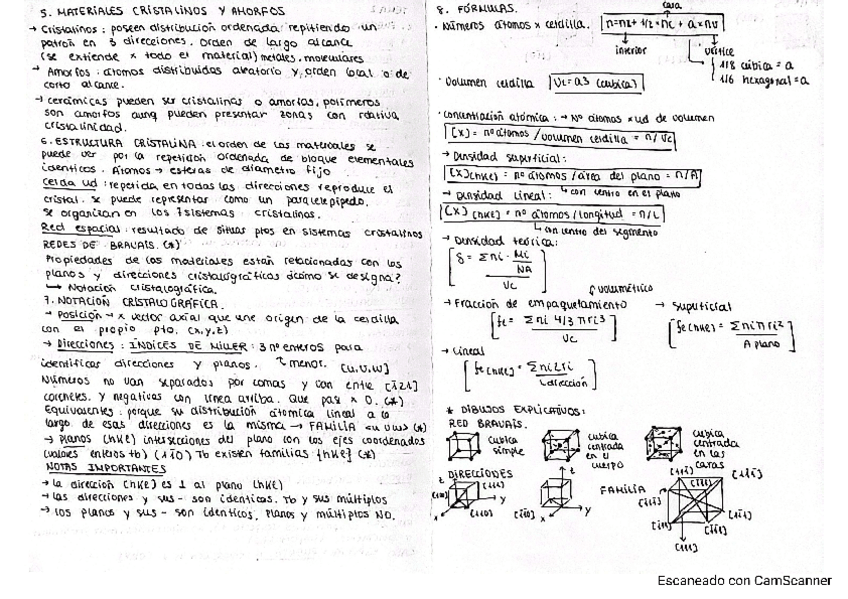 5. MATERIALES CRISTALINOS Y AMORFOS
→ Cristalinos: poseen distribución ordenada repitiendo un
patrón en 3 direcciones. Orden de largo alcance
(se extiende x todo el material) metales, moleculares
→ Amorfos: átomos distribuidos aleatorio y orden local o de
corto alcance.
→ cerámicas pueden ser cristalinos o amorfas, polímeros
son amorfos aunq pueden presentar zonas con relativa
cristalinidad.
6. ESTRUCTURA CRISTALINA: el orden de los materiales se
puede ver por la repetición ordenada de bloque elementales
identicos. Átomos → esferas de diametro fijo
Celda ud: repetida en todas las direcciones reproduce el
cristal. se puede representar como un paralelepipedo.
se organizan en los 7 sistemas cristalinos.
Red espacial: resultado de situar ptos en sistemas cristalinos
REDES DE BRAVAIS. (*)
Propiedades de los materiales están relacionadas con los
planos y direcciones cristalográficas ¿cómo se designa?
↳ Notación cristalográfica.
7. NOTACIÓN CRISTALOGRÁFICA.
→ Posición → x vector axial que une origen de la celdilla
con el propio pto. (x,y,z)
→ Direcciones: ÍNDICES DE MILLER: 3 nº enteros para
identificar direcciones y planos. ↳ menor. [u,v,w]
Números no van separados por comas y van entre [1̄21]
corchetes. y negativas con línea arriba. Que pas x 0. (*)
Equivalentes: porque su distribución atómica lineal a lo
largo de esas direcciones es la misma → FAMILIA <uvw> (*)
→ planos (hkl) intersecciones del plano con los ejes coordenados
(valores enteros tb) (11̄0) Tb existen familias {hkl} (*)
NOTAS IMPORTANTES
→ la dirección [hkl] es ⊥ al plano (hkl)
→ las direcciones y sus - son identicas. Tb y sus múltiplos
→ los planos y sus - son identicos. Planos y múltiplos NO.
8. FÓRMULAS.
cara
· Números átomos x celdilla. n = ni + 1/2 · nc + a × nv
interior vértice
1/8 cúbica = a
1/6 hexagonal = a
· Volumen celdilla Vc = a3 (cúbica)
· Concentración atómica: → Nº átomos x ud de volumen
[x] = nº átomos / volumen celdilla = n / Vc
→ Densidad superficial:
[x](hkl) = nº átomos / área del plano = n/A
→ Densidad lineal: ↳ con centro en el plano
[x][hkl] = nº átomos / longitud = n/L
↳ con centro del segmento
→ Densidad teórica:
δ = Σni · Mi/NA / Vc
volumétrico
→ Fracción de empaquetamiento → Superficial
fc = Σni 4/3 πri3 / Vc fe(hkl) = Σni πri2 / A plano
→ Lineal
fe[hkl] = Σni 2ri / L dirección
* DIBUJOS EXPLICATIVOS:
RED BRAVAIS.
cúbica simple
cúbica centrada en el cuerpo
cúbica centrada en las caras
DIRECCIONES FAMILIA
z y x
[111] [110]
z y x
[111]